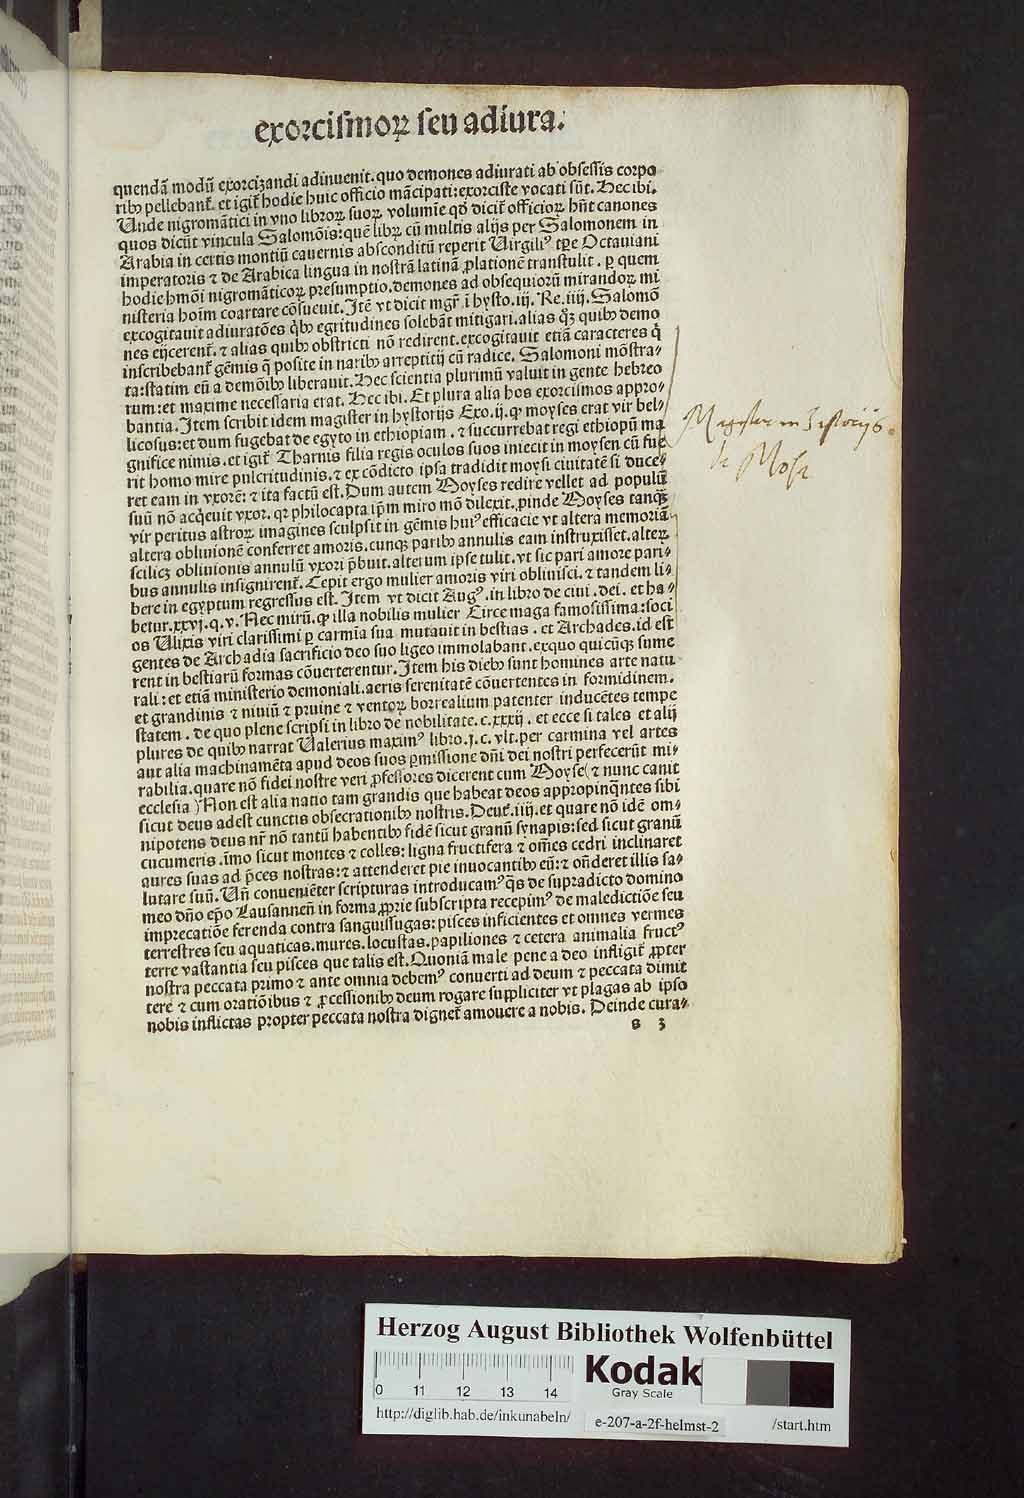 exorcismoꝝ seu adiura.
quendã modũ exorcizandi adinuenit. quo demones adiurati ab obsessis corpo
ribꝰ pellebant᷑. et igit᷑ hodie huic officio mãcipati: exorciste vocati sũt. Hec ibi.
Unde nigromãtici in vno libroꝝ suoꝝ volumĩe qđ dicit᷑ officioꝝ hñt canones
quos dicũt vincula Salomõis: quẽ librũ cũ multis alijs per Salomonem in
Arabia in certis montiũ cauernis absconditũ reperit Uirgiliꝰ tꝑe Octauiani
imperatoris ⁊ de Arabica lingua in nostrã latinã ꝓlationẽ transtulit. ꝑ quem
hodie hmõi nigromãticoꝝ presumptio. demones ad obsequiorũ mirandoꝝ mi
nisteria hoĩm coartare cõsueuit. Itẽ vt dicit mgr̃ ĩ hysto. iij. Re. iiij. Salomõ
excogitauit adiuratões q̃bꝰ egritudines solebãt mitigari. alias qꝫ quibꝰ demo
nes eijcerent᷑. ⁊ alias quibꝰ obstricti nõ redirent. excogitauit etiã caracteres q̃
inscribebant᷑ gẽmis q̃ posite in naribꝰ arreptitij cũ radice. Salomoni mõstra⸗
ta: statim eũ a demõibꝰ liberauit. Hec scientia plurimũ valuit in gente hebreo
rum: et maxime necessaria erat. Hec ibi. Et plura alia hos exorcismos appro⸗
bantia. Item scribit idem magister in hystorijs Exo. ij. ꝙ moyses erat vir bel⸗
licosus: et dum fugebat de egyto in ethiopiam. ⁊ succurrebat regi ethiopũ ma
gnifice nimis. et igit᷑ Tharmis filia regis oculos suos iniecit in moysen cũ fue
rit homo mire pulcritudinis. ⁊ ex cõdicto ipsa tradidit moysi ciuitatẽ si duce⸗
ret eam in vxorẽ: ⁊ ita factũ est. Dum autem Moyses redire vellet ad populũ
suũ nõ acq̃euit vxor. qꝛ philocapta ip̃m miro mõ dilexit. ꝓinde Moyses tanqꝫ
vir peritus astroꝝ imagines sculpsit in gẽmis huiꝰ efficacie vt altera memoriã
altera obliuionẽ conferret amoris. cunqꝫ paribꝰ annulis eam instruxisset. alteꝝ
scilicꝫ obliuionis annulũ vxori p̃buit. alterum ipse tulit. vt sic pari amore pari⸗
bus annulis insignirent᷑. Cepit ergo mulier amoris viri obliuisci. ⁊ tandem li⸗
bere in egyptum regressus est. Item vt dicit Augꝰ. in libro de ciui. dei. et ha⸗
betur. xxvj. q. v. Nec mirũ. ꝙ illa nobilis mulier Circe maga famosissima: soci
os Ulixis viri clarissimi ꝑ carmia sua mutauit in bestias. et Archades. id est
gentes de Archadia sacrificio deo suo ligeo immolabant. exquo quicũqꝫ sume
rent in bestiarũ formas cõuerterentur. Item his diebꝰ sunt homines arte natu
rali: et etiã ministerio demoniali. aeris serenitatẽ cõuertentes in formidinem.
et grandinis ⁊ niuiũ ⁊ pruine ⁊ ventoꝝ borrealium patenter inducẽtes tempe
statem. de quo plene scripsi in libro de nobilitate. c. xxxij. et ecce si tales et alij
plures de quibꝰ narrat Ualerius maximꝰ libro. j. c. vlt. per carmina vel artes
aut alia machinamẽta apud deos suos ꝑmissione dñi dei nostri perfecerũt mi⸗
rabilia. quare nõ fidei nostre veri ꝓfessores dicerent cum Moyse (⁊ nunc canit
ecclesia) Non est alia natio tam grandis que habeat deos appropinq̃ntes sibi
sicut deus adest cunctis obsecrationibꝰ nostris. Deut᷑. iiij. et quare nõ idẽ om⸗
nipotens deus nr̃ nõ tantũ habentibꝰ fidẽ sicut granũ synapis: sed sicut granũ
cucumeris. ĩmo sicut montes ⁊ colles: ligna fructifera ⁊ om̃es cedri inclinaret
aures suas ad p̃ces nostras: ⁊ attenderet pie inuocantibꝰ eũ: ⁊ oñderet illis sa⸗
lutare suũ. Uñ conueniẽter scripturas introducamꝰ q̃s de supradicto domino
meo dño ep̃o Lausanneñ in forma ꝓprie subscripta recepimꝰ de maledictiõe seu
imprecatiõe ferenda contra sanguissugas: pisces inficientes et omnes vermes
terrestres seu aquaticas. mures. locustas. papiliones ⁊ cetera animalia fructꝰ
terre vastantia seu pisces que talis est. Quoniã male pene a deo infligit᷑ ꝓpter
nostra peccata primo ⁊ ante omnia debemꝰ conuerti ad deum ⁊ peccata dimit
tere ⁊ cum oratiõibus ⁊ ꝓcessionibꝰ deum rogare suppliciter vt plagas ab ipso
nobis inflictas propter peccata nostra dignet᷑ amouere a nobis. Deinde cura⸗
s 3
Magister in Historijs
de Mose
Herzog August Bibliothek Wolfenbüttel
0 11 12 13 14
Kodak
Gray Scale
http://diglib.hab.de/inkunabeln/ e-207-a-2f-helmst-2 /start.htm